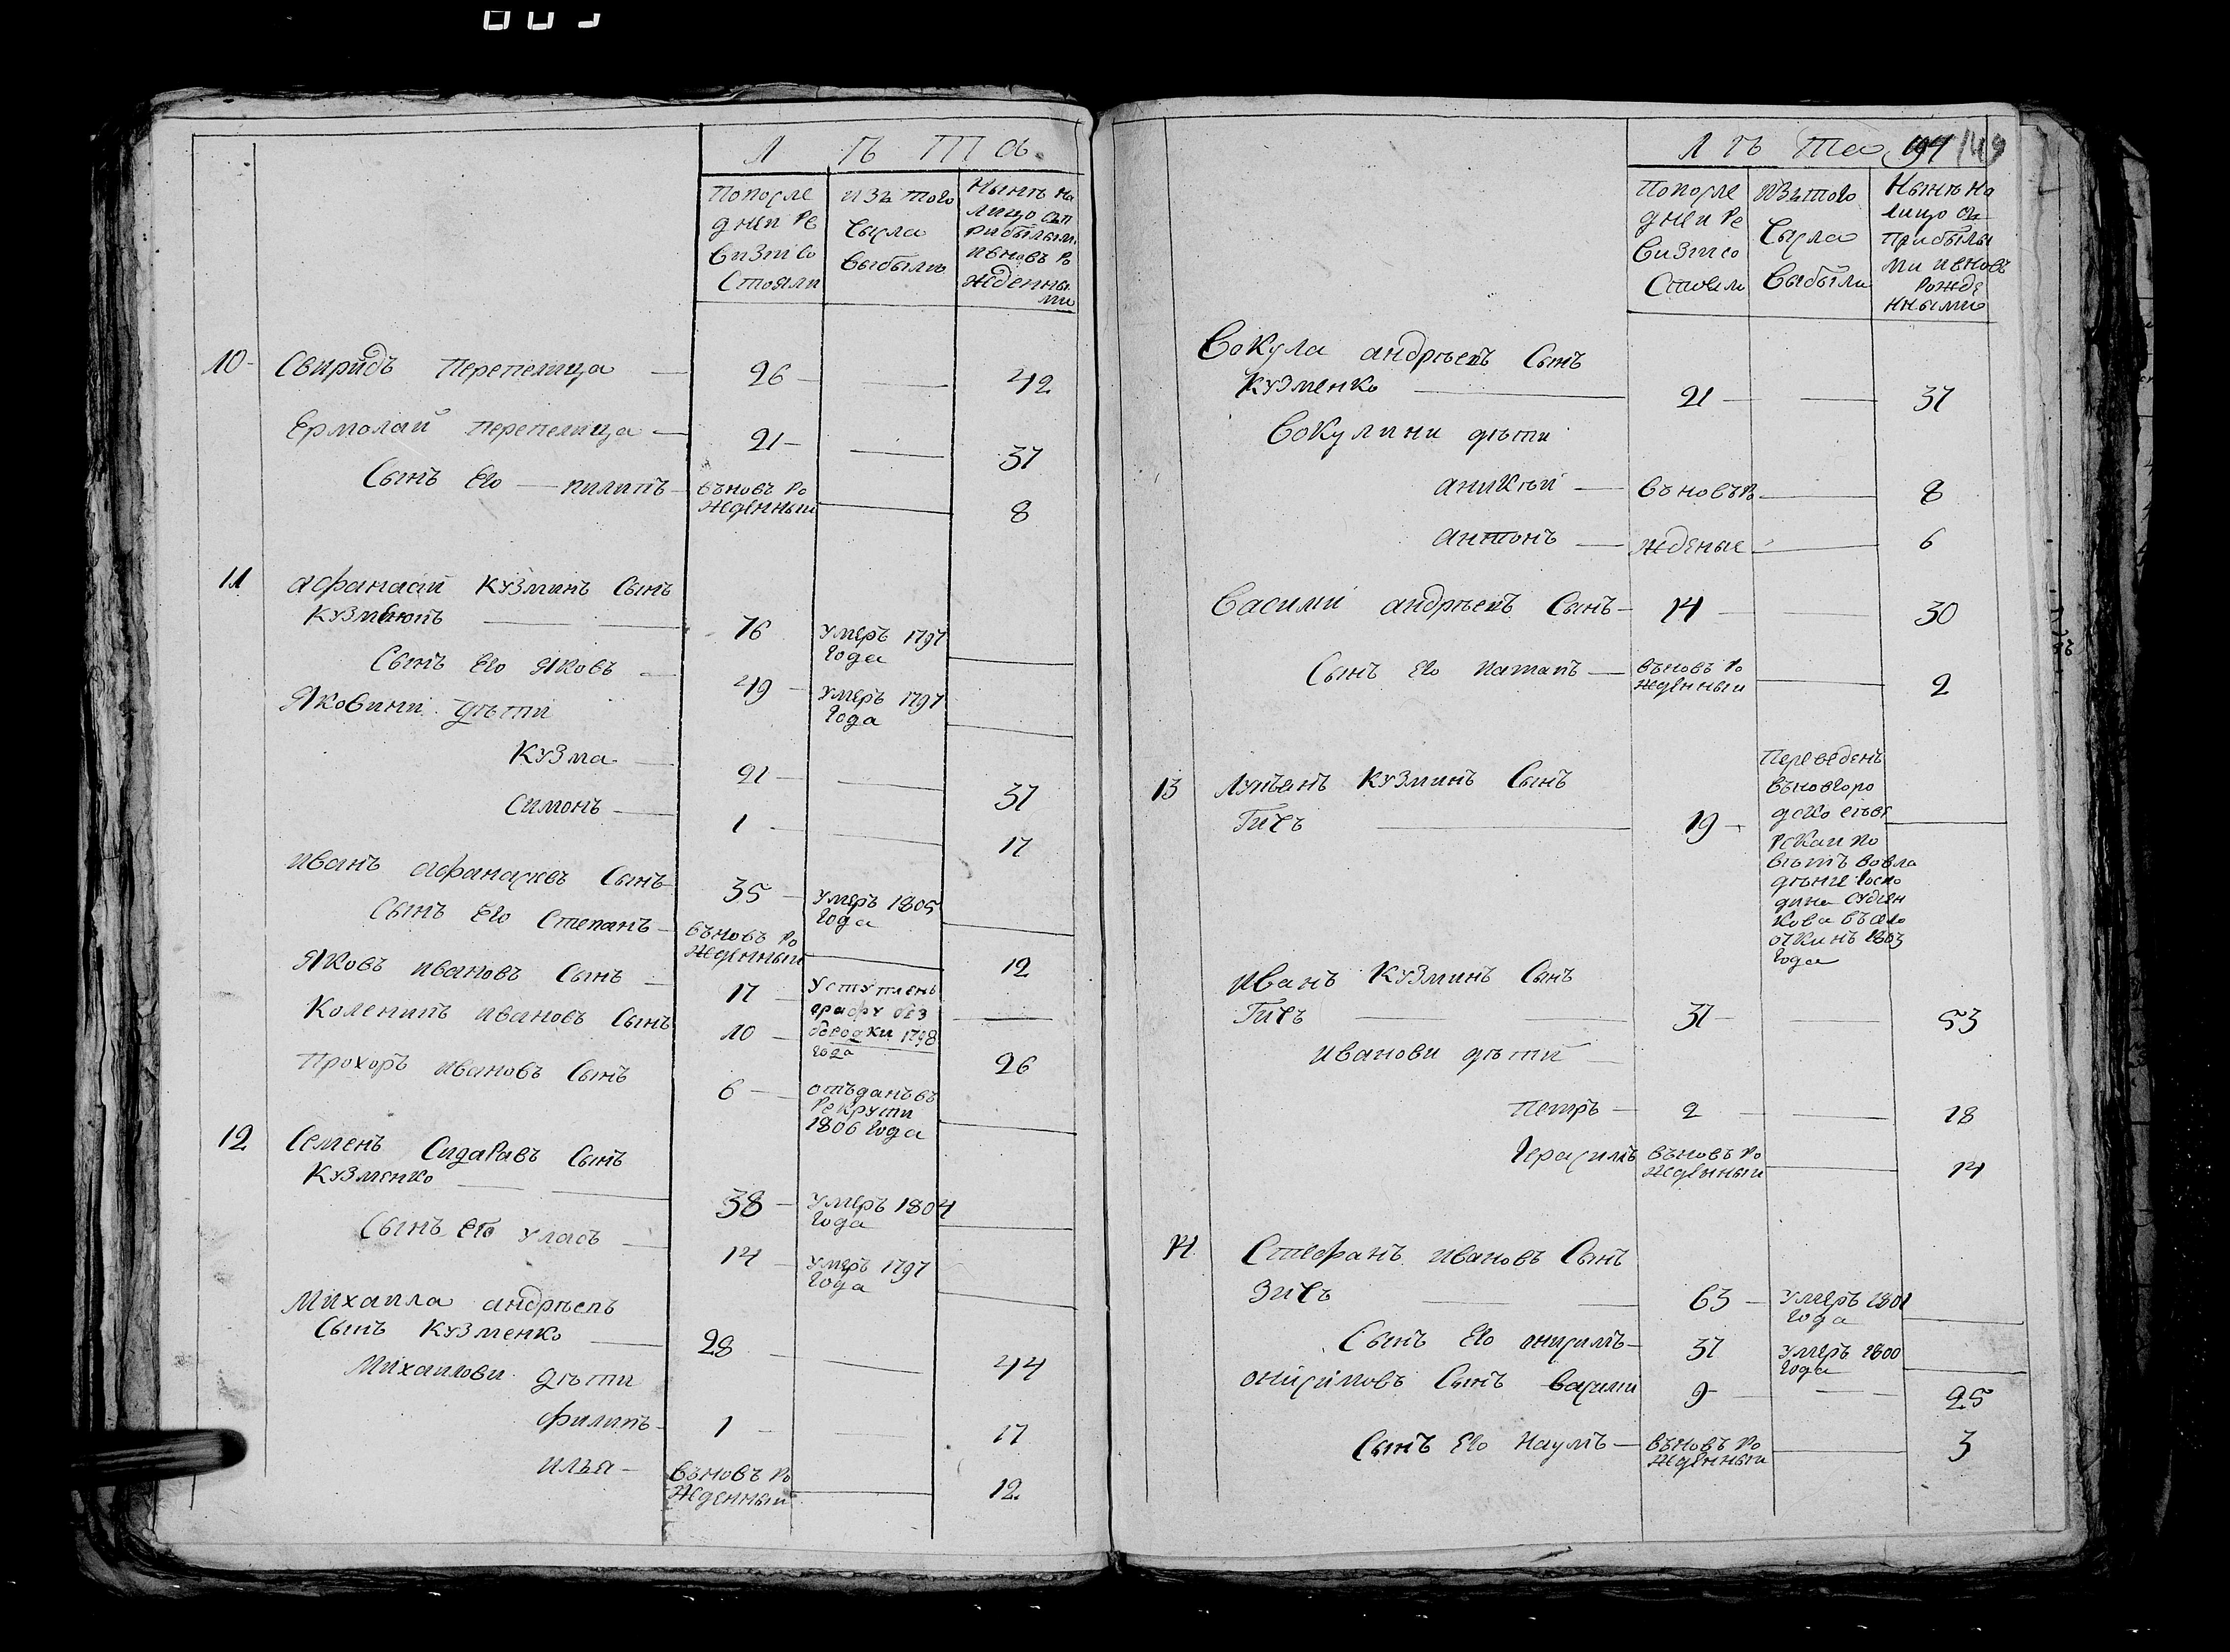 Л ѣ т а
Попосле изъ того Нынѣ на
дней ре числа лицо съп
визіи со выбыло рибылыми
стояли ивновъ ро
жденны
ми
10 Свиридъ Перепелица 26 42
Ермолай Перепелица 21 37
Сынъ Его пилипъ въновъ ро
жденный 8
11 афанасій Кузминъ Сынъ
Кузменко 76 умеръ 1797
года
Сынъ Его Яковъ 49 умеръ 1797
года
Яковини дѣти
Кузма 21 37
Симонъ 1 17
иванъ афанасиевъ Сынъ 35 умеръ 1805
года
Сынъ Его Степанъ въновъ ро
жденный 12
Яковъ ивановъ Сынъ 17 уступленъ
графу без
бородки 1798
года
Коленикъ ивановъ Сынъ 10 26
Прохоръ ивановъ Сынъ 6 отъданъ въ
рекрути
1806 года
12 Семенъ Сидаравъ Сынъ
Кузменко 38 умеръ 1804
года
Сынъ его уласъ 14 умеръ 1797
года
Михаила андрѣевъ
Сынъ Кузменко 28 44
Михаилови дѣти
филипъ 1 17
илья въновъ ро
жденный 12
Л ѣ та 149
Попосле изътого Нынѣ на
дней ре числа лицо съ
визіи со выбыли прибылы
стояли ми ивновъ
рожде
нными
Вокула андрѣевъ Сынъ
Кузменко 21 37
Вокулини дѣти
аникѣй въновъ ро 8
антонъ жденые 6
Василий андрѣевъ Сынъ 14 30
Сынъ Его Патапъ въновъ ро
жденный 2
13 Лукьянъ Кузминъ Сынъ
Гичъ 19 Переведенъ
въновгоро
вѣтъ вовла
дѣние госпо
дина судиен
кова
1803
года
иванъ Кузминъ Сынъ
Гичъ 37 53
иванови дѣти
Петръ 2 18
Герасимъ въновъ ро
жденный 14
14 Стефанъ ивановъ Сынъ
Зичъ 63 умеръ 1801
года
Сынъ Его онисимъ 37 умеръ 1800
года
онисимовъ Сынъ василий 9 25
Сынъ Его Наумъ въновъ ро
жденный 3